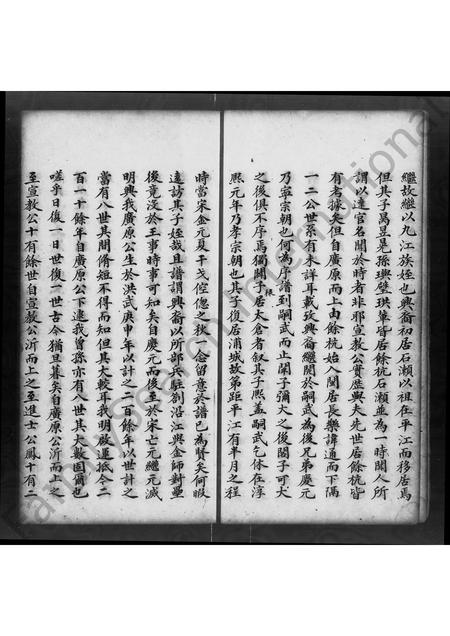 繼故繼以九江族姪也興裔初居石瀨以祖在平江而移居焉
但其子萬昱晃孫璵璧珙華皆居餘杭石瀨並為一時聞人所
謂以達官名聞於時者非耶宣教公實歷與夫先世居餘杭皆
有者據文但自廣原而上由餘杭始入閩居長樂諱通而下隔
一二公世系有未詳耳載攷興裔繼閱於嗣武為後兄弟慶元
乃寧宗朝也何為序譜到嗣武而止閑子彌大之後閱子可大
之後俱不序焉獨闢子居太倉者叙其子熙蓋嗣武乞休在淳
熙元年乃孝宗朝也其子復居浦城故第距平江有半月之程
時當宋金元夏干戈倥偬之秋一念留意於譜已為賢矣何暇
遠訪其子姪哉且譜謂興裔以所部兵駐劄沿江與金師對壘
後竟没於王事時事可知矣自慶元而後至於宋亡元繼元滅
明興我廣原公生於洪武庚申年以計之二百餘年以世計之
當有八世其間脩短不得而知但其大較耳我明啟運抵今二
百一十餘年自廣原公下逮我曾孫亦有八世其大數固爾也
嗟乎日復一日世復一世古今猶旦暮矣自廣原公沂而上之
至宣教公十有餘世自宣教公沂而上之至進士公鳳十有二